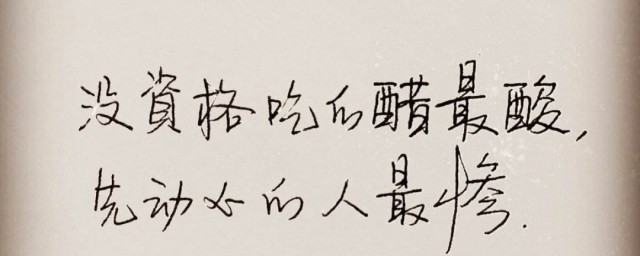 没資格吃的醋最酸，
先动心的人最惨.